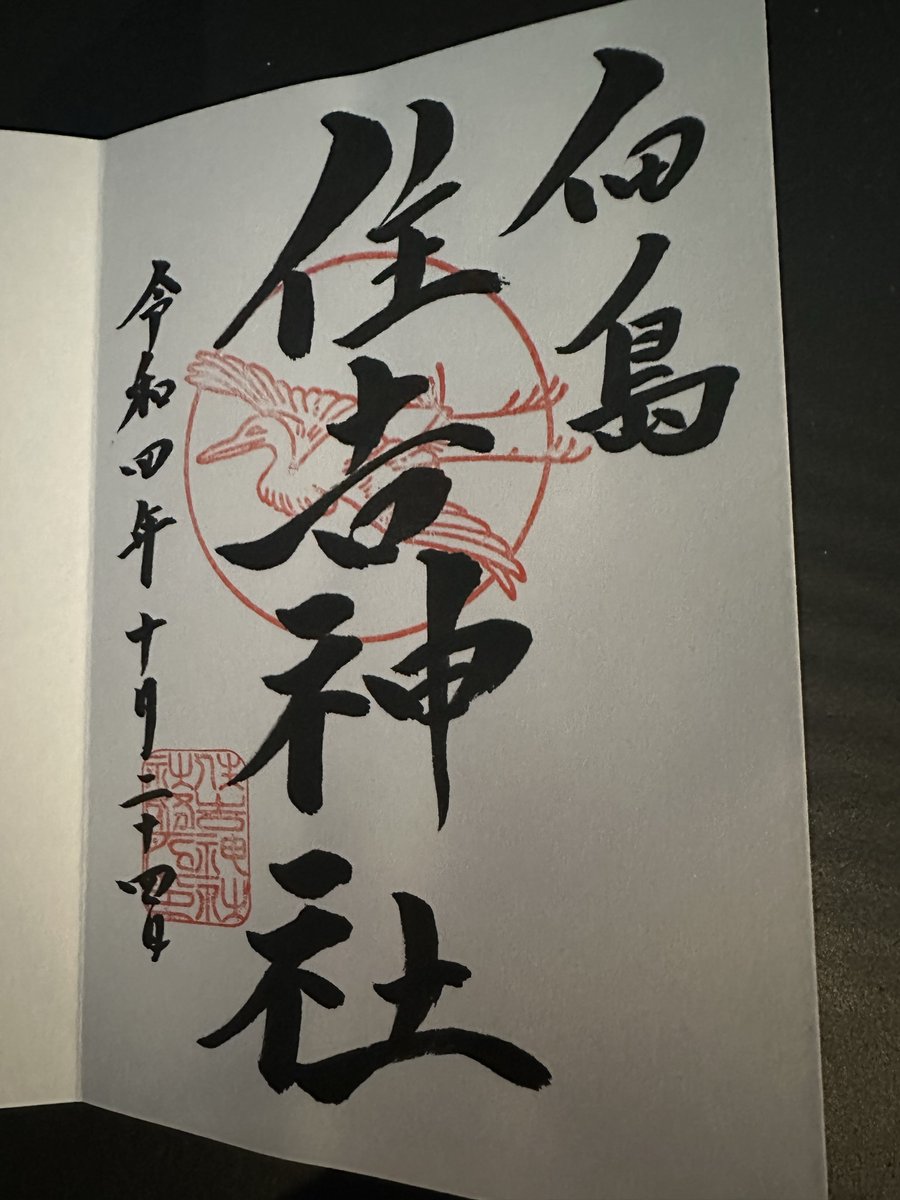 佃島
住吉神社
令和四年十月二十四日
住吉神社